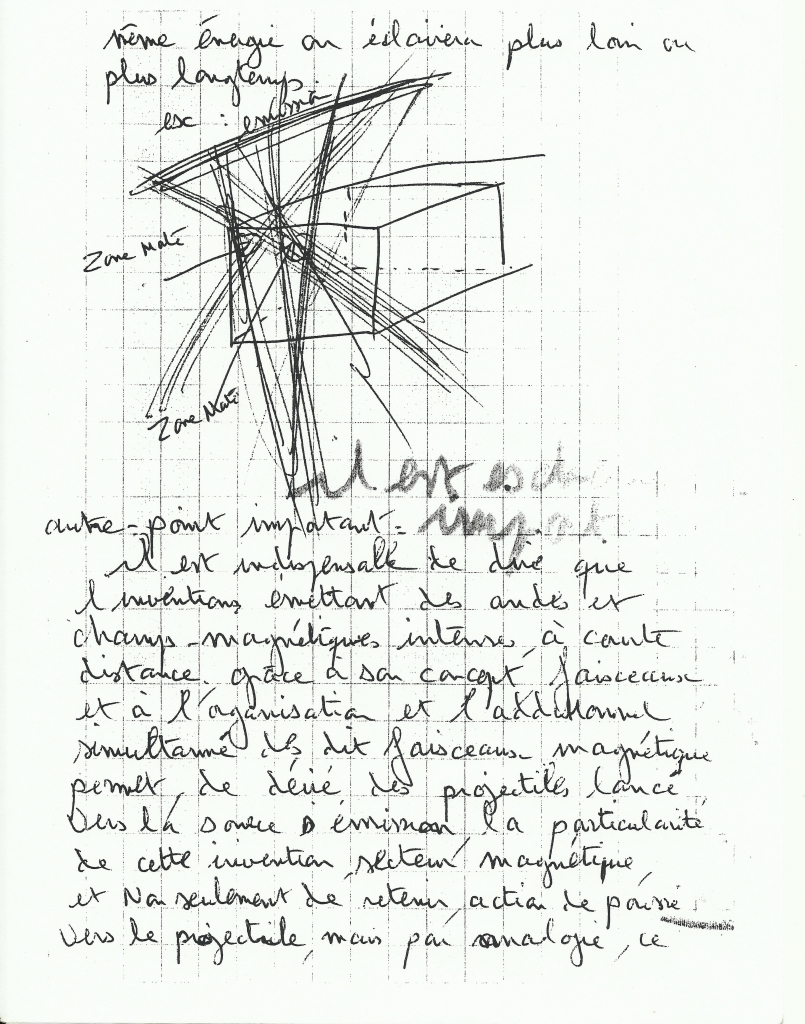 même énergie on éclairera plus loin ou
plus longtemps.
ex :
Zone Maté
Zone Maté
il est
autre-point important-
import
il est indispensable de dire que
l'inventions, émettant des ondes et
champs-magnétiques, intense, à courte
distance. grâce à son concept, faisceaux
et à l'organisation et l'additionnel
simultanné dès dit faisceaux-magnétique
permet, de dévié des projectiles lancé
Vers la source D émission, la particularité
de cette invention, secteur, magnétique,
et Non seulement de retenir, action de poussé
Vers le projectile, mais par analogie, ce